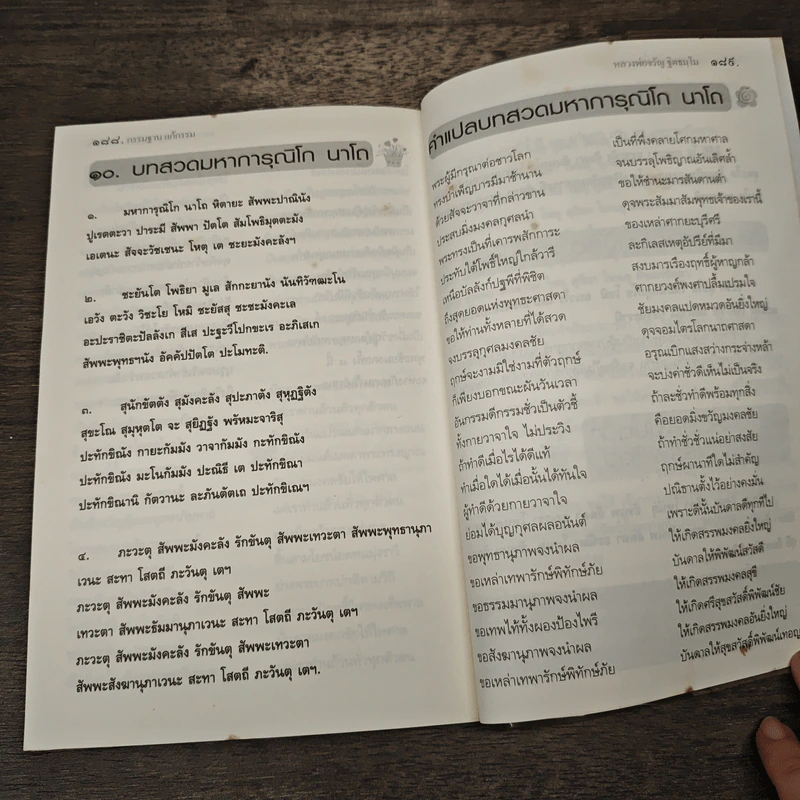 ๑๘๘. กรรมฐาน แก้กรรม
๑๐. บทสวดมหาการุณิโก นาโถ
๑. มหาการุณิโก นาโถ หิตายะ สัพพะปาณินัง
ปูเรตตะวา ปาระมี สัพพา ปัตโต สัมโพธิมุตตะมัง
เอเตนะ สัจจะวัชเชนะ โหตุ เต ชะยะมังคะลังฯ
๒. ชะยันโต โพธิยา มูเล สักกะยานัง นันทิวัฑฒะโน
เอวัง ตะวัง วิชะโย โหมิ ชะยัสสุ ชะชะมังคะเล
อะปะราชิตะปัลลังเก สีเส ปะฐะวีโปกขะเร อะภิเสเก
สัพพะพุทธานัง อัคคัปปัตโต ปะโมทะติ.
๓. สุนักขัตตัง สุมังคะลัง สุปะภาตัง สุหุฏฐิตัง
สุขะโณ สุมุหุตโต จะ สุยิฏฐัง พรัหมะจาริสุ
ปะทักขิณัง กายะกัมมัง วาจากัมมัง กะทักขิณัง
ปะทักขิณัง มะโนกัมมัง ปะณิธี เต ปะทักขิณา
ปะทักขิณานิ กัตวานะ ละภันตัตเถ ปะทักขิเณฯ
๔. ภะวะตุ สัพพะมังคะลัง รักขันตุ สัพพะเทวะตา สัพพะพุทธานุภา
เวนะ สะทา โสตถี ภะวันตุ เตฯ
ภะวะตุ สัพพะมังคะลัง รักขันตุ สัพพะ
เทวะตา สัพพะธัมมานุภาเวนะ สะทา โสตถี ภะวันตุ เตฯ
ภะวะตุ สัพพะมังคะลัง รักขันตุ สัพพะเทวะตา
สัพพะสังฆานุภาเวนะ สะทา โสตถี ภะวันตุ เตฯ.
หลวงพ่อจรัญ ฐิตธมฺโม ๑๘๙.
คำแปลบทสวดมหาการุณิโก นาโถ
พระผู้มีกรุณาต่อชาวโลก เป็นที่พึ่งคลายโศกมหาศาล
ทรงบำเพ็ญบารมีมาช้านาน จนบรรลุโพธิญาณอันเลิศล้ำ
ด้วยสัจจะวาจาที่กล่าวขาน ขอให้ชำนะมารสันดานต่ำ
ประสบมิ่งมงคลกุศลนำ ดุจพระสัมมาสัมพุทธเจ้าของเรานี้
พระทรงเป็นที่เคารพสักการะ ของเหล่าศากยะบุรีศรี
ประทับใต้โพธิ์ใหญ่ใกล้วารี ละกิเลสเหตุอัปรีย์ที่มีมา
เหนือบัลลังก์ปฐพีที่พิชิต สงบมารเรืองฤทธิ์ผู้หาญกล้า
ถึงสุดยอดแห่งพุทธะศาสดา ศากยวงศ์พงศาปลื้มเปรมใจ
ขอให้ท่านทั้งหลายที่ได้สวด ชัยมงคลแปดหมวดอันยิ่งใหญ่
จงบรรลุกุศลมงคลชัย ดุจจอมไตรโลกนาถศาสดา
ฤกษ์จะงามมิใช่งามที่ตัวฤกษ์ อรุณเบิกแสงสว่างกระจ่างหล้า
ก็เพียงบอกขณะผันวันเวลา จะบ่งค่าชั่วดีเห็นไม่เป็นจริง
อันกรรมดีกรรมชั่วเป็นตัวชี้ ถ้าละชั่วทำดีพร้อมทุกสิ่ง
ทั้งกายวาจาใจ ไม่ประวิง คือยอดมิ่งขวัญมงคลชัย
ถ้าทำดีเมื่อไรได้ดีแท้ ถ้าทำชั่วชั่วแน่อย่าสงสัย
ทำเมื่อใดได้เมื่อนั้นได้ทันใจ ฤกษ์ผานาทีใดไม่สำคัญ
ผู้ทำดีด้วยกายวาจาใจ ปณิธานตั้งไว้อย่างคงมั่น
ย่อมได้บุญกุศลผลอนันต์ เพราะดีนั้นบันดาลดีทุกทีไป
ขอพุทธานุภาพจงนำผล ให้เกิดสรรพมงคลยิ่งใหญ่
ขอเหล่าเทพารักษ์พิทักษ์ภัย บันดาลให้พิพัฒน์สวัสดี
ขอธรรมมานุภาพจงนำผล ให้เกิดสรรพมงคลสุขี
ขอเทพไท้ทั้งผองป้องไพรี ให้เกิดศรีสุขสวัสดิ์พิพัฒน์ชัย
ขอสังฆานุภาพจงนำผล ให้เกิดสรรพมงคลอันยิ่งใหญ่
ขอเหล่าเทพารักษ์พิทักษ์ภัย บันดาลให้สุขสวัสดิ์พิพัฒน์เทอญ